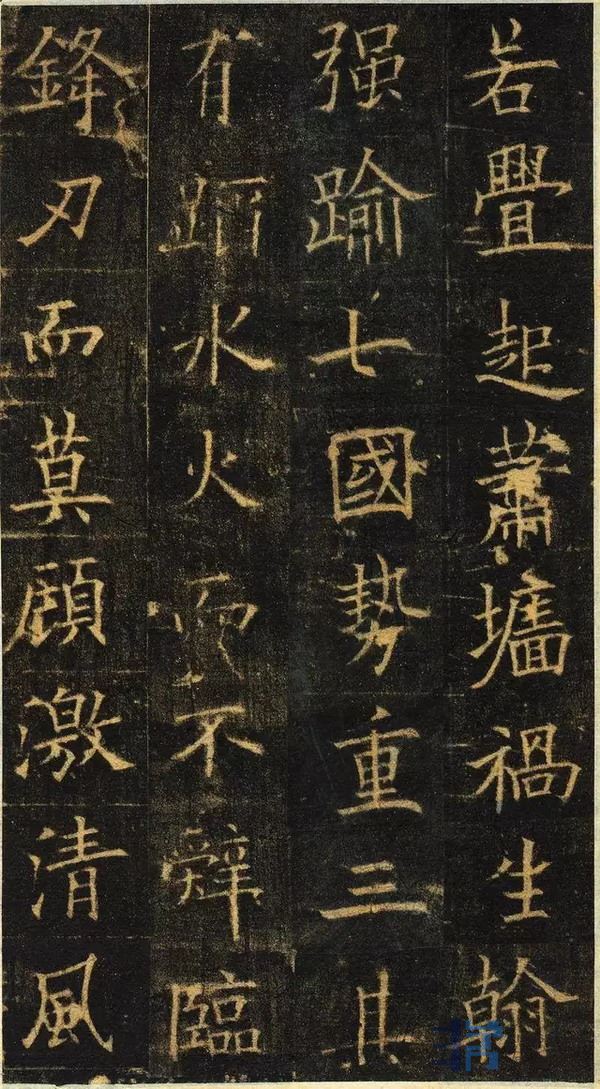 若舋起蕭墻禍生翰
强踰七國勢重三其
有蹈水火而不辭臨
鋒刃而莫顧激清風